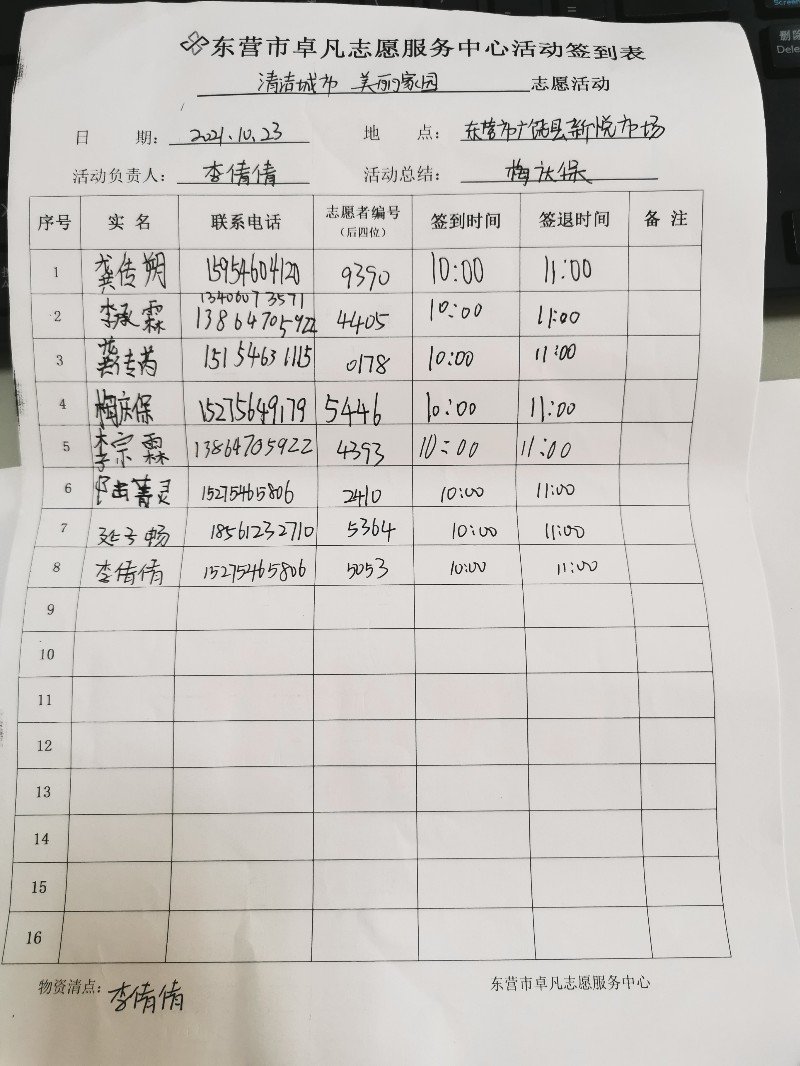 东营市卓凡志愿服务中心活动签到表
清洁城市 美丽家园 志愿活动
日 期: 2021.10.23 地 点: 东营市广饶县新悦市场
活动负责人: 李倩倩 活动总结: 梅庆保
序号 实 名 联系电话 志愿者编号(后四位) 签到时间 签退时间 备 注
1 龚传朔 15954604120 9390 10:00 11:00
13406073571
2 李承霖 13864705922 4405 10:00 11:00
3 龚传芮 15154631115 0178 10:00 11:00
4 梅庆保 15275649179 5446 10:00 11:00
5 李宗霖 13864705922 4393 10:00 11:00
6 菁灵 15275465806 2410 10:00 11:00
7 畅 18561232710 5364 10:00 11:00
8 李倩倩 15275465806 5053 10:00 11:00
9
10
11
12
13
14
15
16
物资清点: 李倩倩 东营市卓凡志愿服务中心
删除
Dele